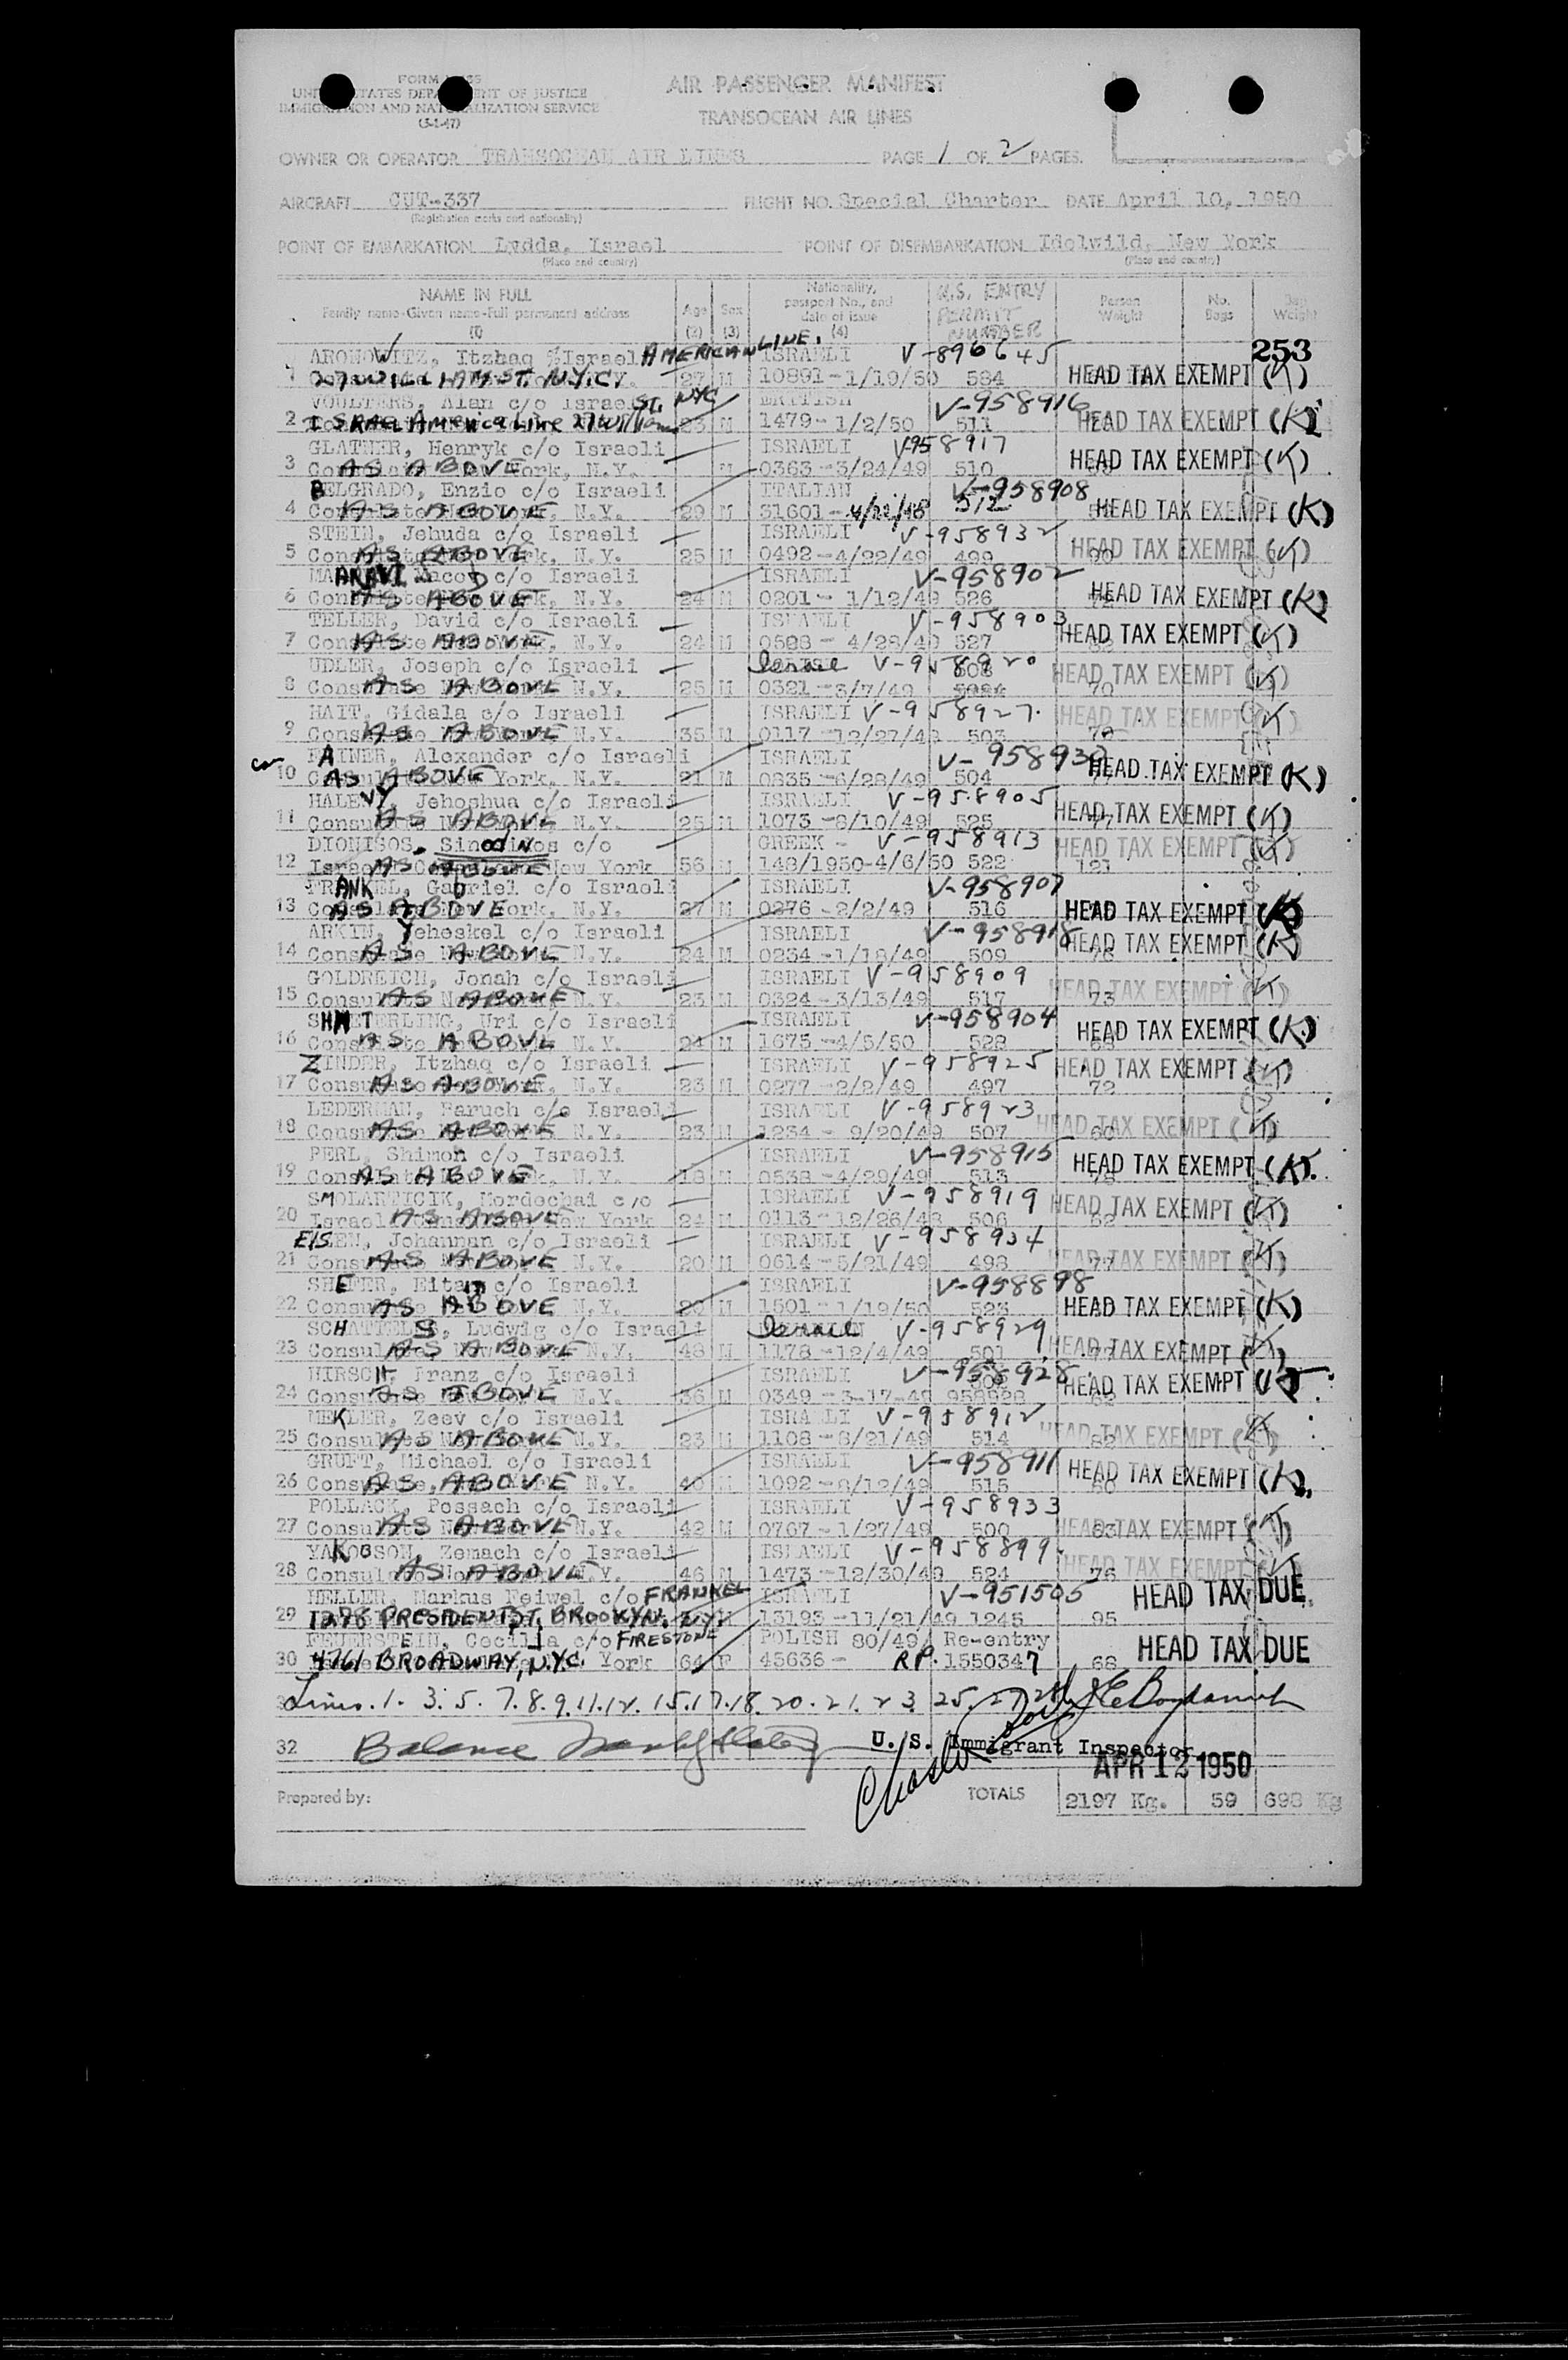 UNITED STATES DEPARTMENT OF JUSTICE
IMMIGRATION AND NATURALIZATION SERVICE
(5-1-47)
AIR PASSENGER MANIFEST
TRANSOCEAN AIR LINES
OWNER OR OPERATOR TRANSOCEAN AIR LINES PAGE 1 OF 2 PAGES.
AIRCRAFT CUT-337 FLIGHT NO. Special Charter DATE April 10, 1950
(Registration marks and nationality)
POINT OF EMBARKATION Lydda, Israel POINT OF DISEMBARKATION Idelwild, New York
(Place and country) (Place and country)
NAME IN FULL
Family name-Given name-Full permanent address
(1) Age (2) Sex (3) Nationality, passport No., and date of issue (4) U.S. ENTRY PERMIT NUMBER Person Weight No. Bags Bag Weight
253
ARONOWITZ, Itzhaq % Israel AMERICAN LINE. ISRAELI V-896645
1 27 WILLIAM ST. N.Y.C. 27 M 10891-1/19/50 584 HEAD TAX EXEMPT (K)
VOULTERS, Alan c/o Israel ST. NYC BRITISH V-958916
2 ISRAEL America Line 27 23 M 1479-1/2/50 511 HEAD TAX EXEMPT (K)
GLATNER, Henryk c/o Israeli ISRAELI V-958917
3 AS ABOVE N.Y. M 0363-3/24/49 510 HEAD TAX EXEMPT (K)
BELGRADO, Enzio c/o Israeli ITALIAN V-958908
4 AS ABOVE N.Y. 29 M 31601- 512 HEAD TAX EXEMPT (K)
STEIN, Jehuda c/o Israeli ISRAELI V-958932
5 AS ABOVE N.Y. 25 M 0492-4/22/49 499 90 HEAD TAX EXEMPT (K)
c/o Israeli ISRAELI V-958902
6 AS ABOVE N.Y. 24 M 0201- 1/12/49 526 HEAD TAX EXEMPT (K)
TELLER, David c/o Israeli ISRAELI V-958903
7 AS ABOVE N.Y. 24 M 0588- 4/28/49 527 HEAD TAX EXEMPT (K)
UDLER, Joseph c/o Israeli Israel V-958920
8 AS ABOVE N.Y. 25 M 0321-3/7/49 70 HEAD TAX EXEMPT (K)
HAIT, Gidala c/o Israeli ISRAELI V-958927
9 AS ABOVE N.Y. 35 M 0117-12/27/48 503 HEAD TAX EXEMPT (K)
FAINER, Alexander c/o Israeli ISRAELI V-958930
10 AS ABOVE York, N.Y. 21 M 0835-6/28/49 504 HEAD TAX EXEMPT (K)
HALEVY, Jehoshua c/o Israeli ISRAELI V-958905
11 AS ABOVE N.Y. 25 M 1073-6/10/49 525 77 HEAD TAX EXEMPT (K)
DIONISOS, c/o GREEK - V-958913
12 AS ABOVE New York 56 M 148/1950-4/6/50 522 121 HEAD TAX EXEMPT (K)
FRANKEL, Gabriel c/o Israeli ISRAELI V-958907
13 AS ABOVE York, N.Y. 27 M 0276-2/2/49 516 HEAD TAX EXEMPT (K)
ARKIN, Yeheskel c/o Israeli ISRAELI V-958918
14 AS ABOVE N.Y. 24 M 0234-1/18/49 509 HEAD TAX EXEMPT (K)
GOLDREICH, Jonah c/o Israeli ISRAELI V-958909
15 AS ABOVE N.Y. 23 M 0324-3/13/49 517 73 HEAD TAX EXEMPT (K)
Uri c/o Israeli ISRAELI V-958904
16 AS ABOVE N.Y. 24 M 1675-4/5/50 528 68 HEAD TAX EXEMPT (K)
ZINDER, Itzhaq c/o Israeli ISRAELI V-958925
17 AS ABOVE N.Y. 23 M 0277-2/2/49 497 72 HEAD TAX EXEMPT (K)
LEDERMAN, Baruch c/o Israeli ISRAELI V-958923
18 AS ABOVE N.Y. 23 M 1234 - 9/20/49 507 60 HEAD TAX EXEMPT (K)
PERL, Shimon c/o Israeli ISRAELI V-958915
19 AS ABOVE N.Y. 18 M 0538-4/29/49 513 HEAD TAX EXEMPT (K)
SMOLARTICIK, Mordechai c/o ISRAELI V-958919
20 AS ABOVE New York 24 M 0113-12/26/48 506 62 HEAD TAX EXEMPT (K)
EISEN, Johannan c/o Israeli ISRAELI V-958934
21 AS ABOVE N.Y. 20 M 0614-5/21/49 498 77 HEAD TAX EXEMPT (K)
SHEFER, Eitan c/o Israeli ISRAELI V-958898
22 AS ABOVE N.Y. 20 M 1501-1/19/50 523 HEAD TAX EXEMPT (K)
Ludwig c/o Israeli Israel V-958929
23 AS ABOVE N.Y. 48 M 1178-12/4/49 501 77 HEAD TAX EXEMPT (K)
HIRSCH, Franz c/o Israeli ISRAELI V-958928
24 AS ABOVE N.Y. 36 M 0349-3-17-49 958928 62 HEAD TAX EXEMPT (K)
MEKLER, Zeev c/o Israeli ISRAELI V-958912
25 AS ABOVE N.Y. 23 M 1108-6/21/49 514 82 HEAD TAX EXEMPT (K)
GRUFT, Michael c/o Israeli ISRAELI V-958911
26 AS ABOVE N.Y. 40 M 1092-6/12/49 515 60 HEAD TAX EXEMPT (K)
POLLACK, Possach c/o Israeli ISRAELI V-958933
27 AS ABOVE N.Y. 42 M 0767-1/27/49 500 83 HEAD TAX EXEMPT (K)
YAKOBSON, Zemach c/o Israeli ISRAELI V-958899
28 AS ABOVE N.Y. 46 M 1473-12/30/49 524 76 HEAD TAX EXEMPT (K)
HELLER, Markus Feiwel c/o FRANKEL ISRAELI V-951505
29 1278 PRESIDENT ST. BROOKYN. N.Y. M 13193-11/21/49 1245 95 HEAD TAX DUE
FEUERSTEIN, Cecilia c/o FIRESTONE POLISH 80/49 Re-entry
30 4761 BROADWAY, N.Y.C. York 64 F 45636- RP. 1550347 68 HEAD TAX DUE
Lines. 1. 3. 5. 7. 8. 9. 11. 12. 15. 17. 18. 20. 21. 23. 25. 27
32 Balance
U. S. Immigrant Inspector
APR 12 1950
Prepared by: TOTALS 2197 Kg. 59 698 Kg